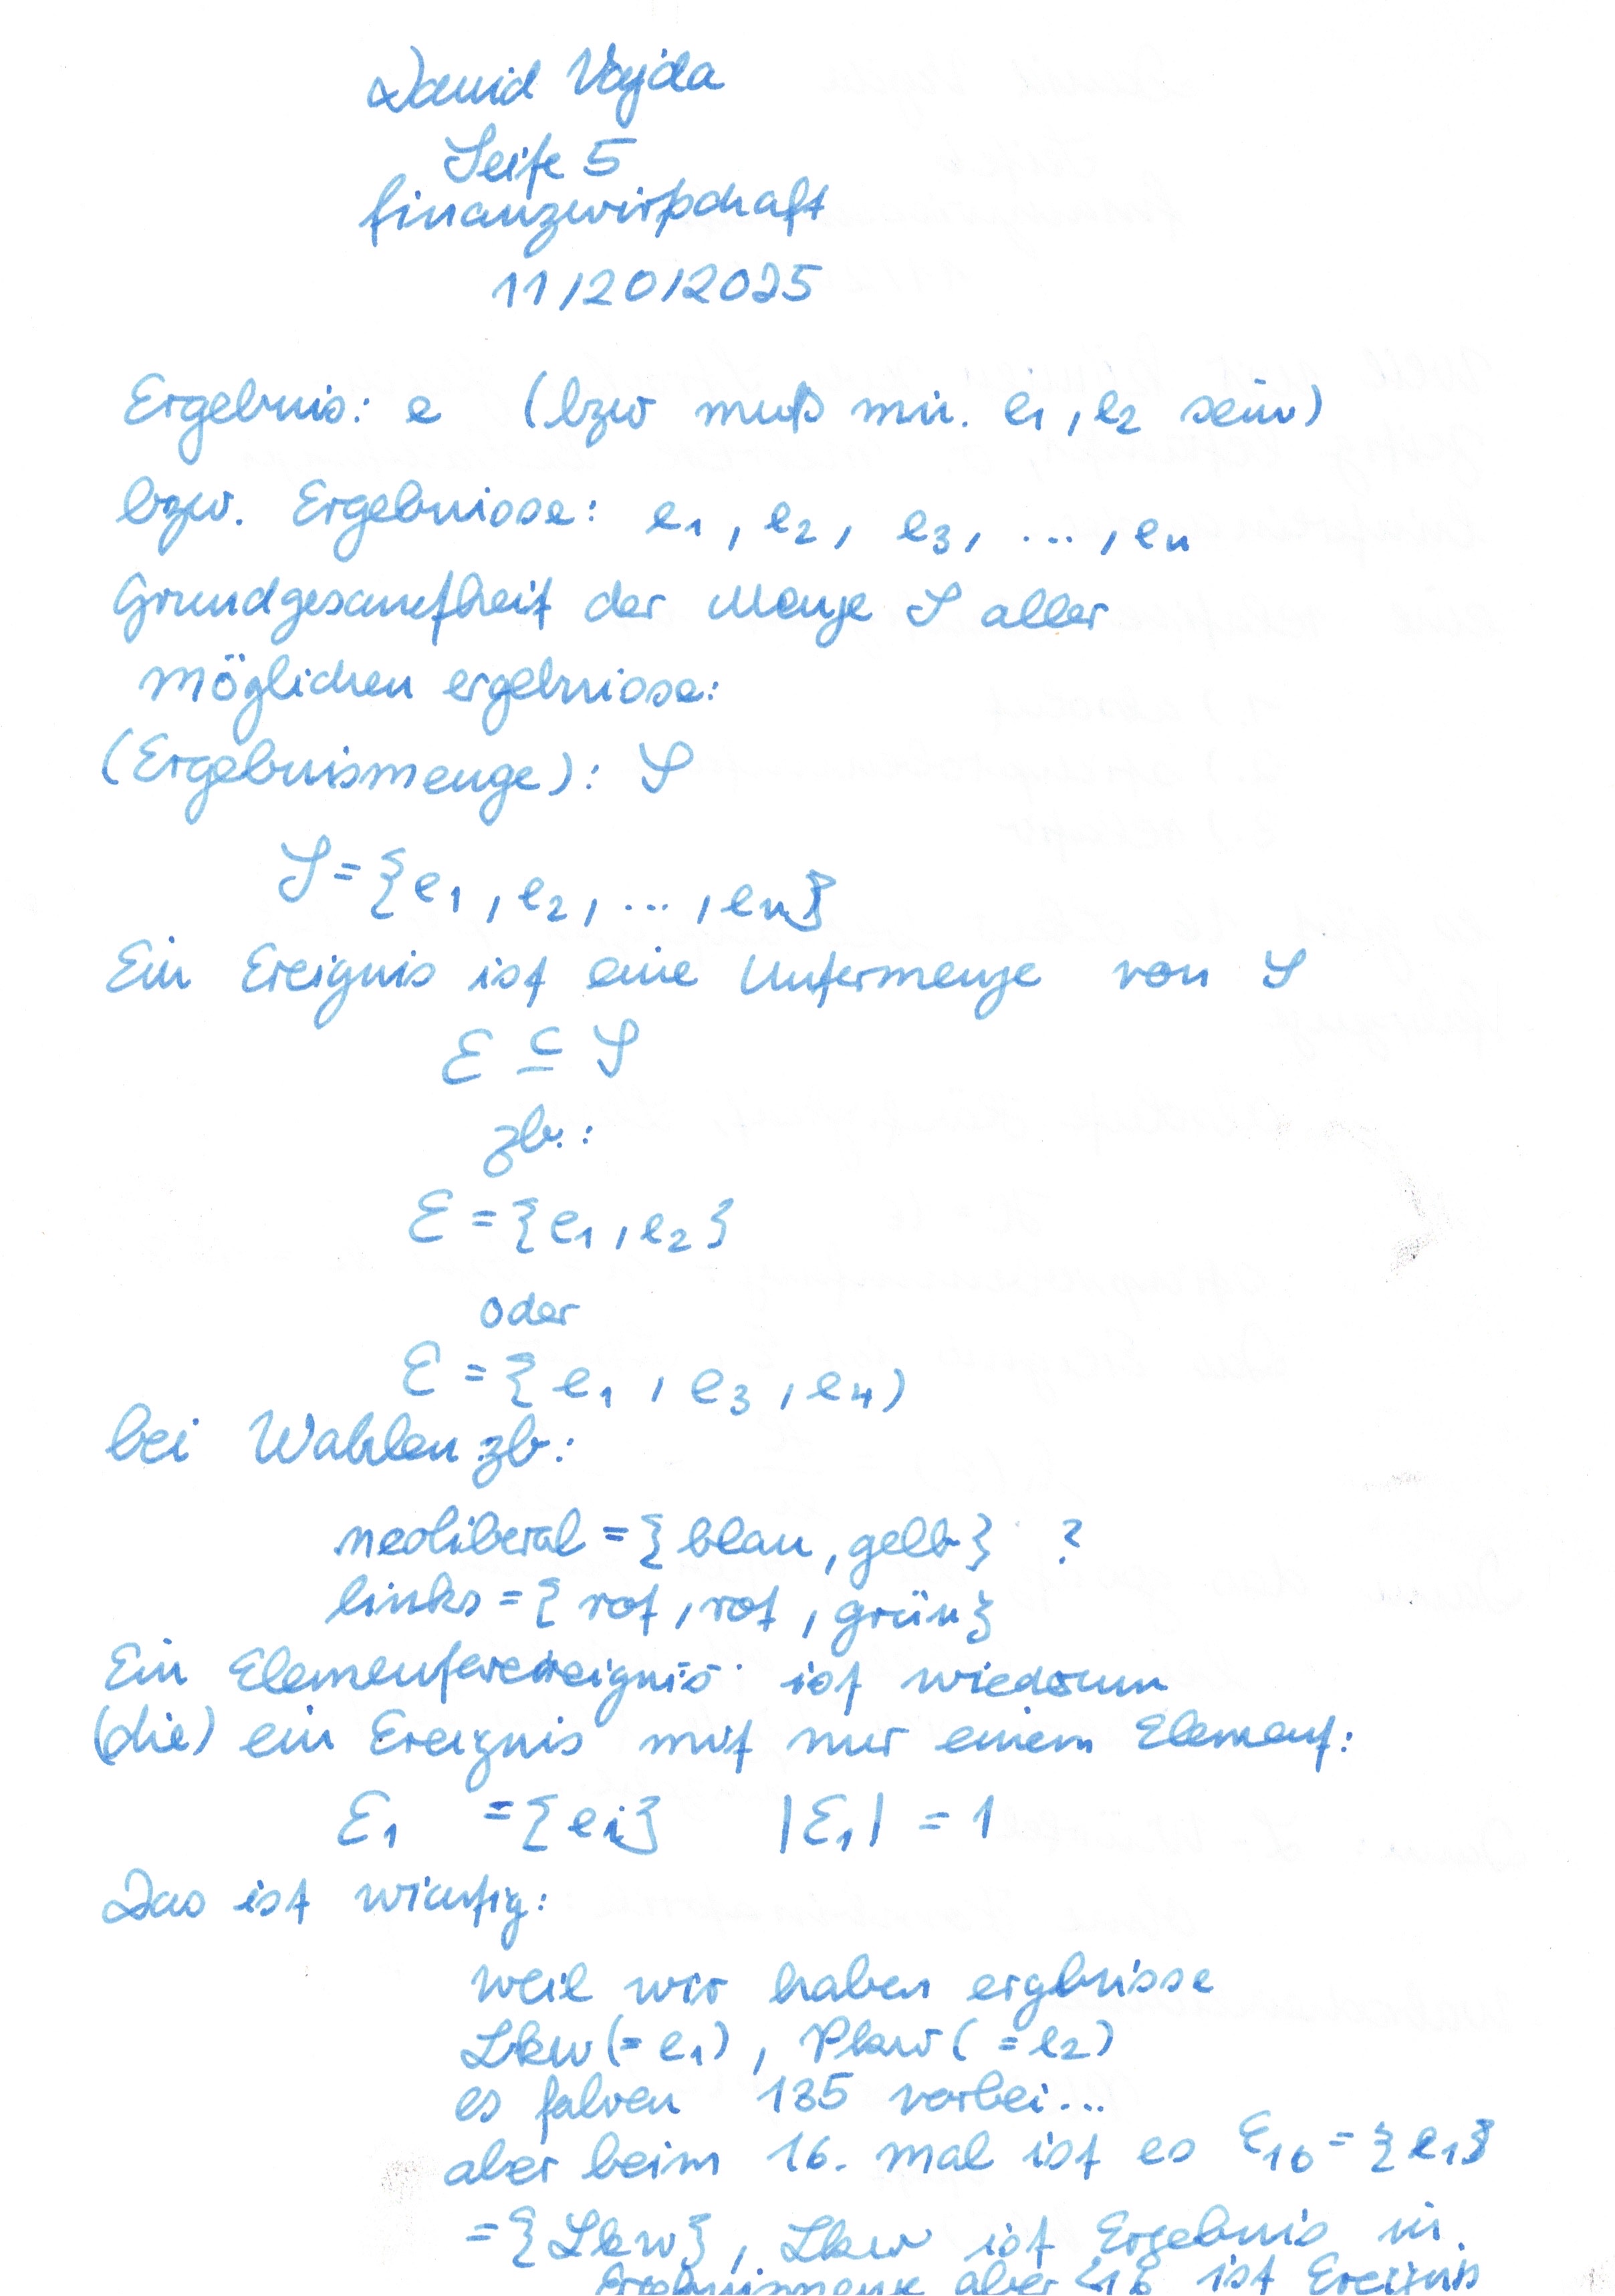 David Vajda
Seite 5
finanzwirtschaft
11/20/2025
Ergebnis: e (bzw muß min. e1, e2 sein)
bzw. Ergebnisse: e1, e2, e3, ..., en
Grundgesamtheit der Menge S aller
möglichen ergebnisse:
(Ergebnismenge): S
S = {e1, e2, ..., en}
Ein Ereignis ist eine Untermenge von S
E ⊆ S
zb.:
E = {e1, e2}
oder
E = {e1, e3, e4)
bei Wahlen zb.:
neoliberal = {blau, gelb} ?
links = {rot, rot, grün}
Ein Elementarereignis ist wiederum
(die) ein Ereignis mit nur einem Element:
E1 = {ei} |E1| = 1
Das ist wichtig:
weil wir haben ergbnisse
Lkw (= e1), Pkw (= e2)
es fahren 135 vorbei...
aber beim 16. mal ist es E16 = {e1}
= {Lkw}, Lkw ist Ergebnis in
Ergebnismenge aber E16 ist Ereignis